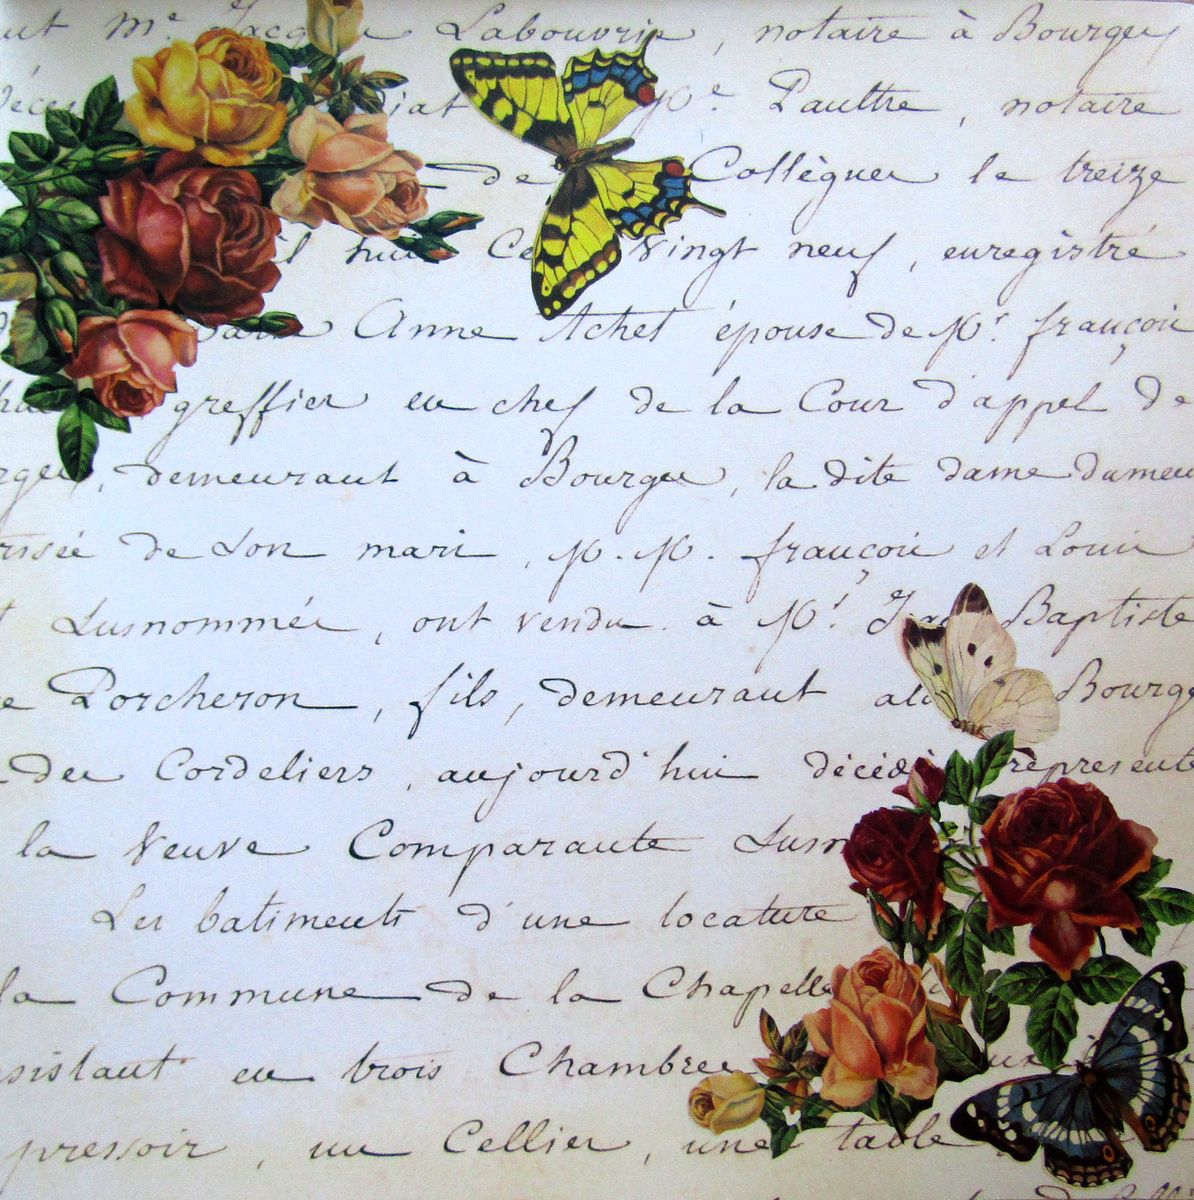 ut Me. Jacque Labouvrie, notaire à Bourges
déces diat Me. Paultre, notaire
de Collègues le treize
il huit Ce Vingt neuf, enregistré
Anne Achet épouse de Mr. françois
greffier en chef de la Cour d'appel de
rges, demeurant à Bourges, la dite dame dument
risée de Son mari, M. M. françois et Louis
Susnommés, ont vendu à Mr. Jean Baptiste
e Porcheron, fils, demeurant à Bourge
des Cordeliers, aujourd'hui décédé représenté
la Veuve Comparante Susn
Les batiments d'une locature
la Commune de la Chapelle
sistant en trois Chambres
pressoir, un Cellier, une table